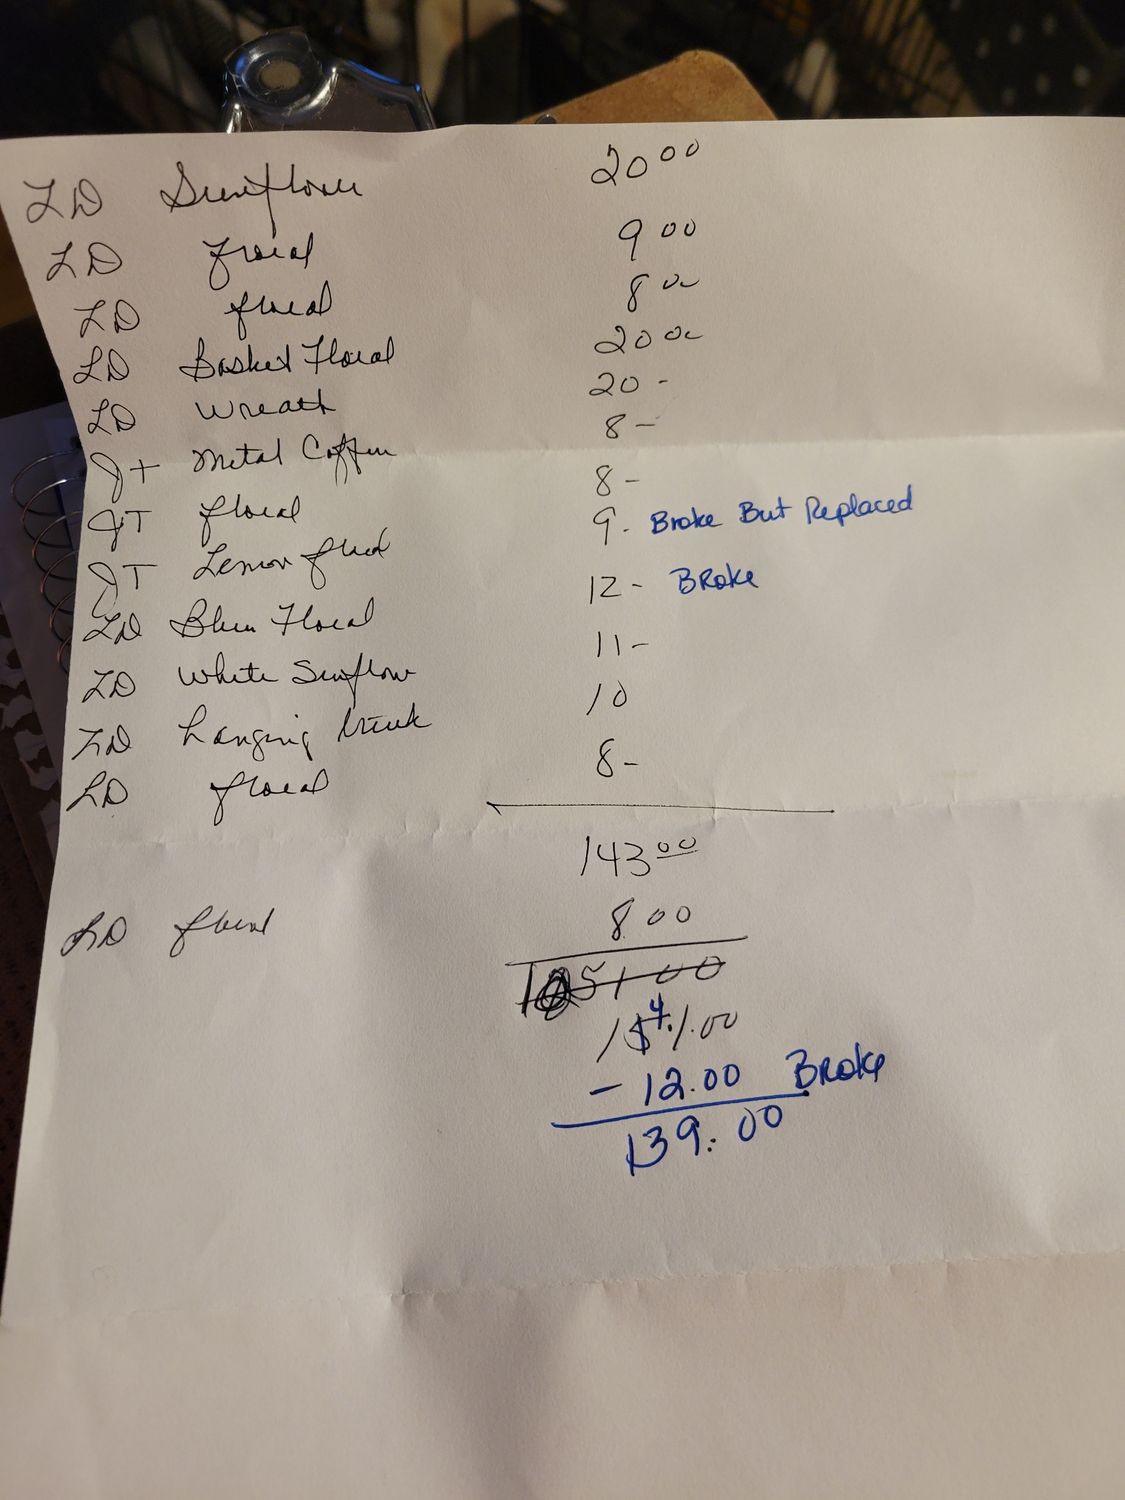 LD Sunflower 20 00
LD Floral 9 00
LD floral 8 00
LD Basket Floral 20 00
LD Wreath 20 -
JT Metal Coffin 8 -
JT floral 8 -
JT Lemon floral 9 - Broke But Replaced
LD Blue Floral 12 - Broke
LD White Sunflow 11 -
LD hanging 10
LD floral 8 -
143 00
LD floral 8 00
151 00
- 12.00 Broke
139.00